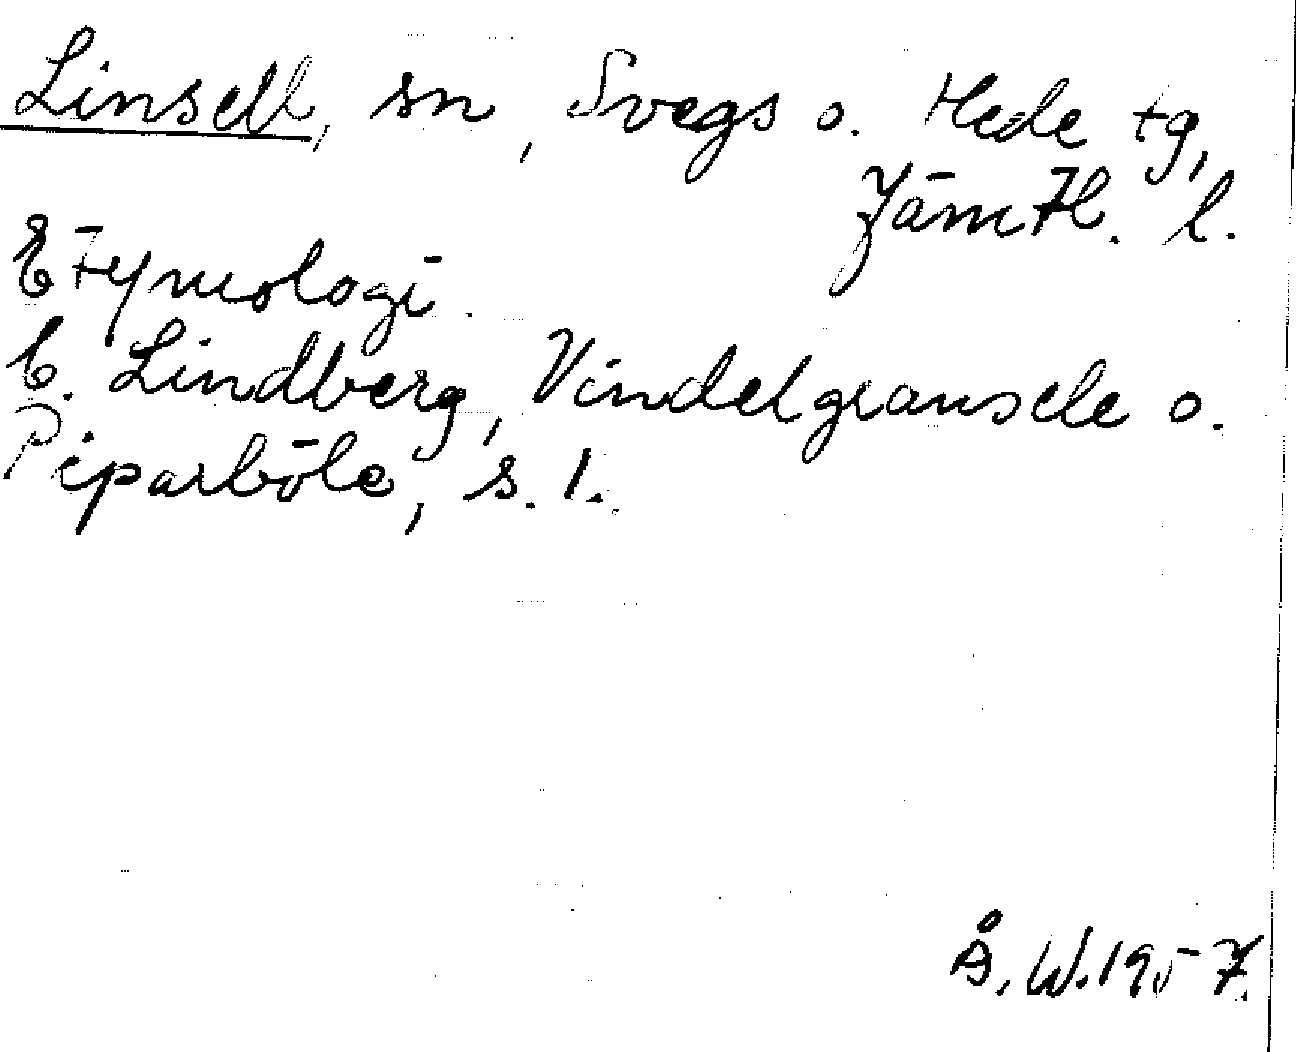 Linsell, sn, Svegs o. Hede tg,
Jämtl. l.
Etymologi.
C. Lindberg, Vindelgransele o.
Piparböle, s. 1.
Å. W. 1957.